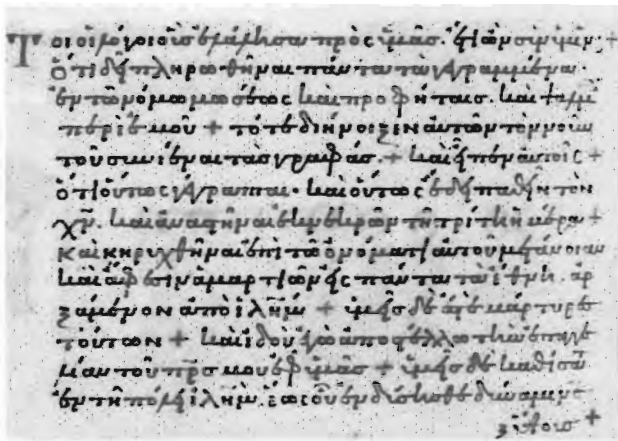 Τοι οἱ λόγοι οὓς ἐλάλησα πρὸς ὑμᾶς. ἔτι ὢν σὺν ὑμῖν +
ὅτι δεῖ πληρωθῆναι πάντα τὰ γεγραμμένα.
ἐν τῶ νόμω μωσέως καὶ προφήταισ. καὶ ψαλμ
περὶ ἐμοῦ + τότε διήνοιξεν αὐτῶν τὸν νοῦν
τοῦ συνιέναι τὰσ γραφάσ. + καὶ εἶπεν αὐτοῖς +
ὅτι οὕτως γέγραπται. καὶ οὕτως ἔδει παθεῖν τὸν
χ̅ν̅. καὶ ἀναστῆναι ἐκ νεκρῶν τῆ τρίτη ἡμέρα +
καὶ κηρυχθῆναι ἐπὶ τῶ ὀνόματι αὐτοῦ μετάνοιαν
καὶ ἄφεσιν ἁμαρτιῶν εἰς πάντα τὰ ἔθνη. ἀρ
ξάμενον ἀπὸ ιλη̅μ + ὑμεῖς δέ ἐστε μάρτυρες
τούτων + καὶ ἰδοὺ ἐγὼ ἀποστέλλω τὴν ἐπαγγε
λίαν τοῦ π̅ρ̅σ̅ μου ἐφ ὑμᾶς + ὑμεῖς δὲ καθίσατε
ἐν τῆ πόλει ιλη̅μ. ἕως οὗ ἐνδύσησθε δύναμιν ἐ
ξ ὕψους +